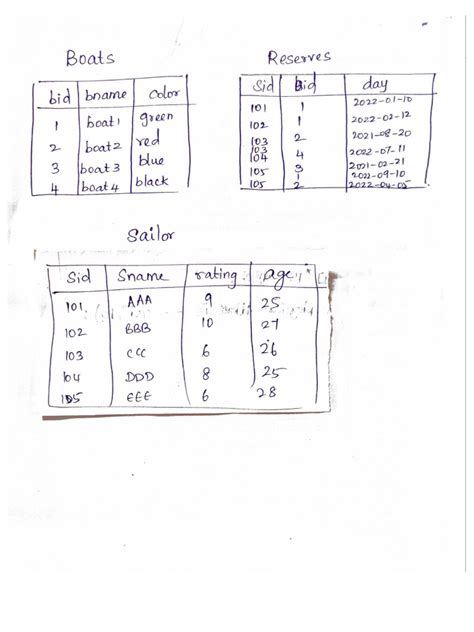 Boats
bid bname color
1 boat1 green
2 boat2 red
3 boat3 blue
4 boat4 black
Reserves
Sid bid day
101 1 2022-01-10
102 1 2022-02-12
103 2 2021-08-20
103
104 4 2022-07-11
105 3 2021-02-21
105 2 2022-09-10
2022-04-05
Sailor
Sid Sname rating age
101 AAA 9 25
102 BBB 10 27
103 CCC 6 26
104 DDD 8 25
105 EEE 6 28